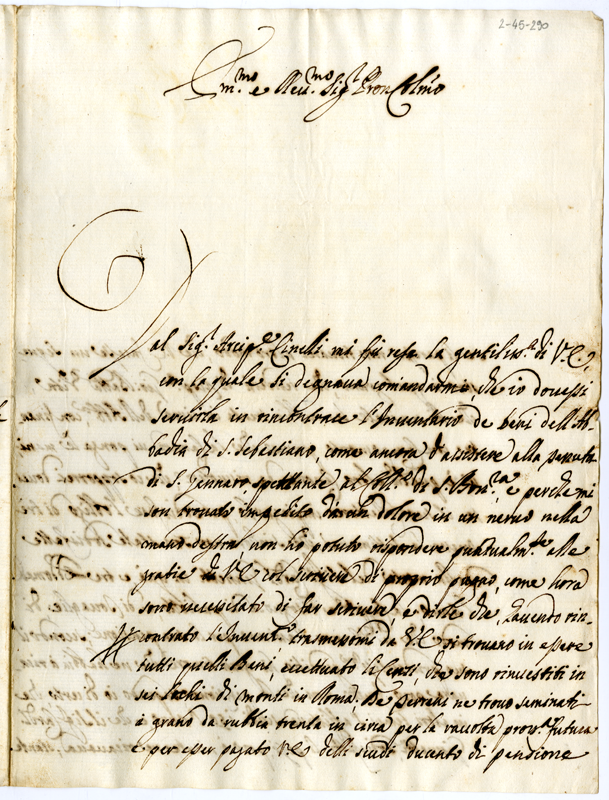 2-45-290
Em.mo e Reu.mo Sig.r Pron Colmo
Dal Sig.r Arcip.e Cinelli mi fù resa la gentiliss.a di V.E.,
con la quale si degnaua comandarmi, che io douessi
seruirla in rincontrare l'Inuentario de beni dell'Ab-
badia di S. Sebastiano, come ancora d'assistere alla
di S. Gennaro, spettante al Coll.o di S. Bon.ra, e perche mi
son trouato impedito da un dolore in un neruo nella
mano destra, non hò potuto rispondere puntualm.te alle
gratie di V.E. col scriuere di proprio pugno, come hora
sono necessitato di far scriuere, e dirle che, hauendo rin-
contrato l'Inuent.o trasmessomi da V.E. si trouano in essere
tutti quelli Beni, eccettuato li Censi, che sono rinuestiti in
sei lochi di monti in Roma. De terreni ne trouo seminati
à grano da rubbia trenta in circa per la raccolta pros.a futura
e per esser pagato V.E. delli scudi ducento di pensione